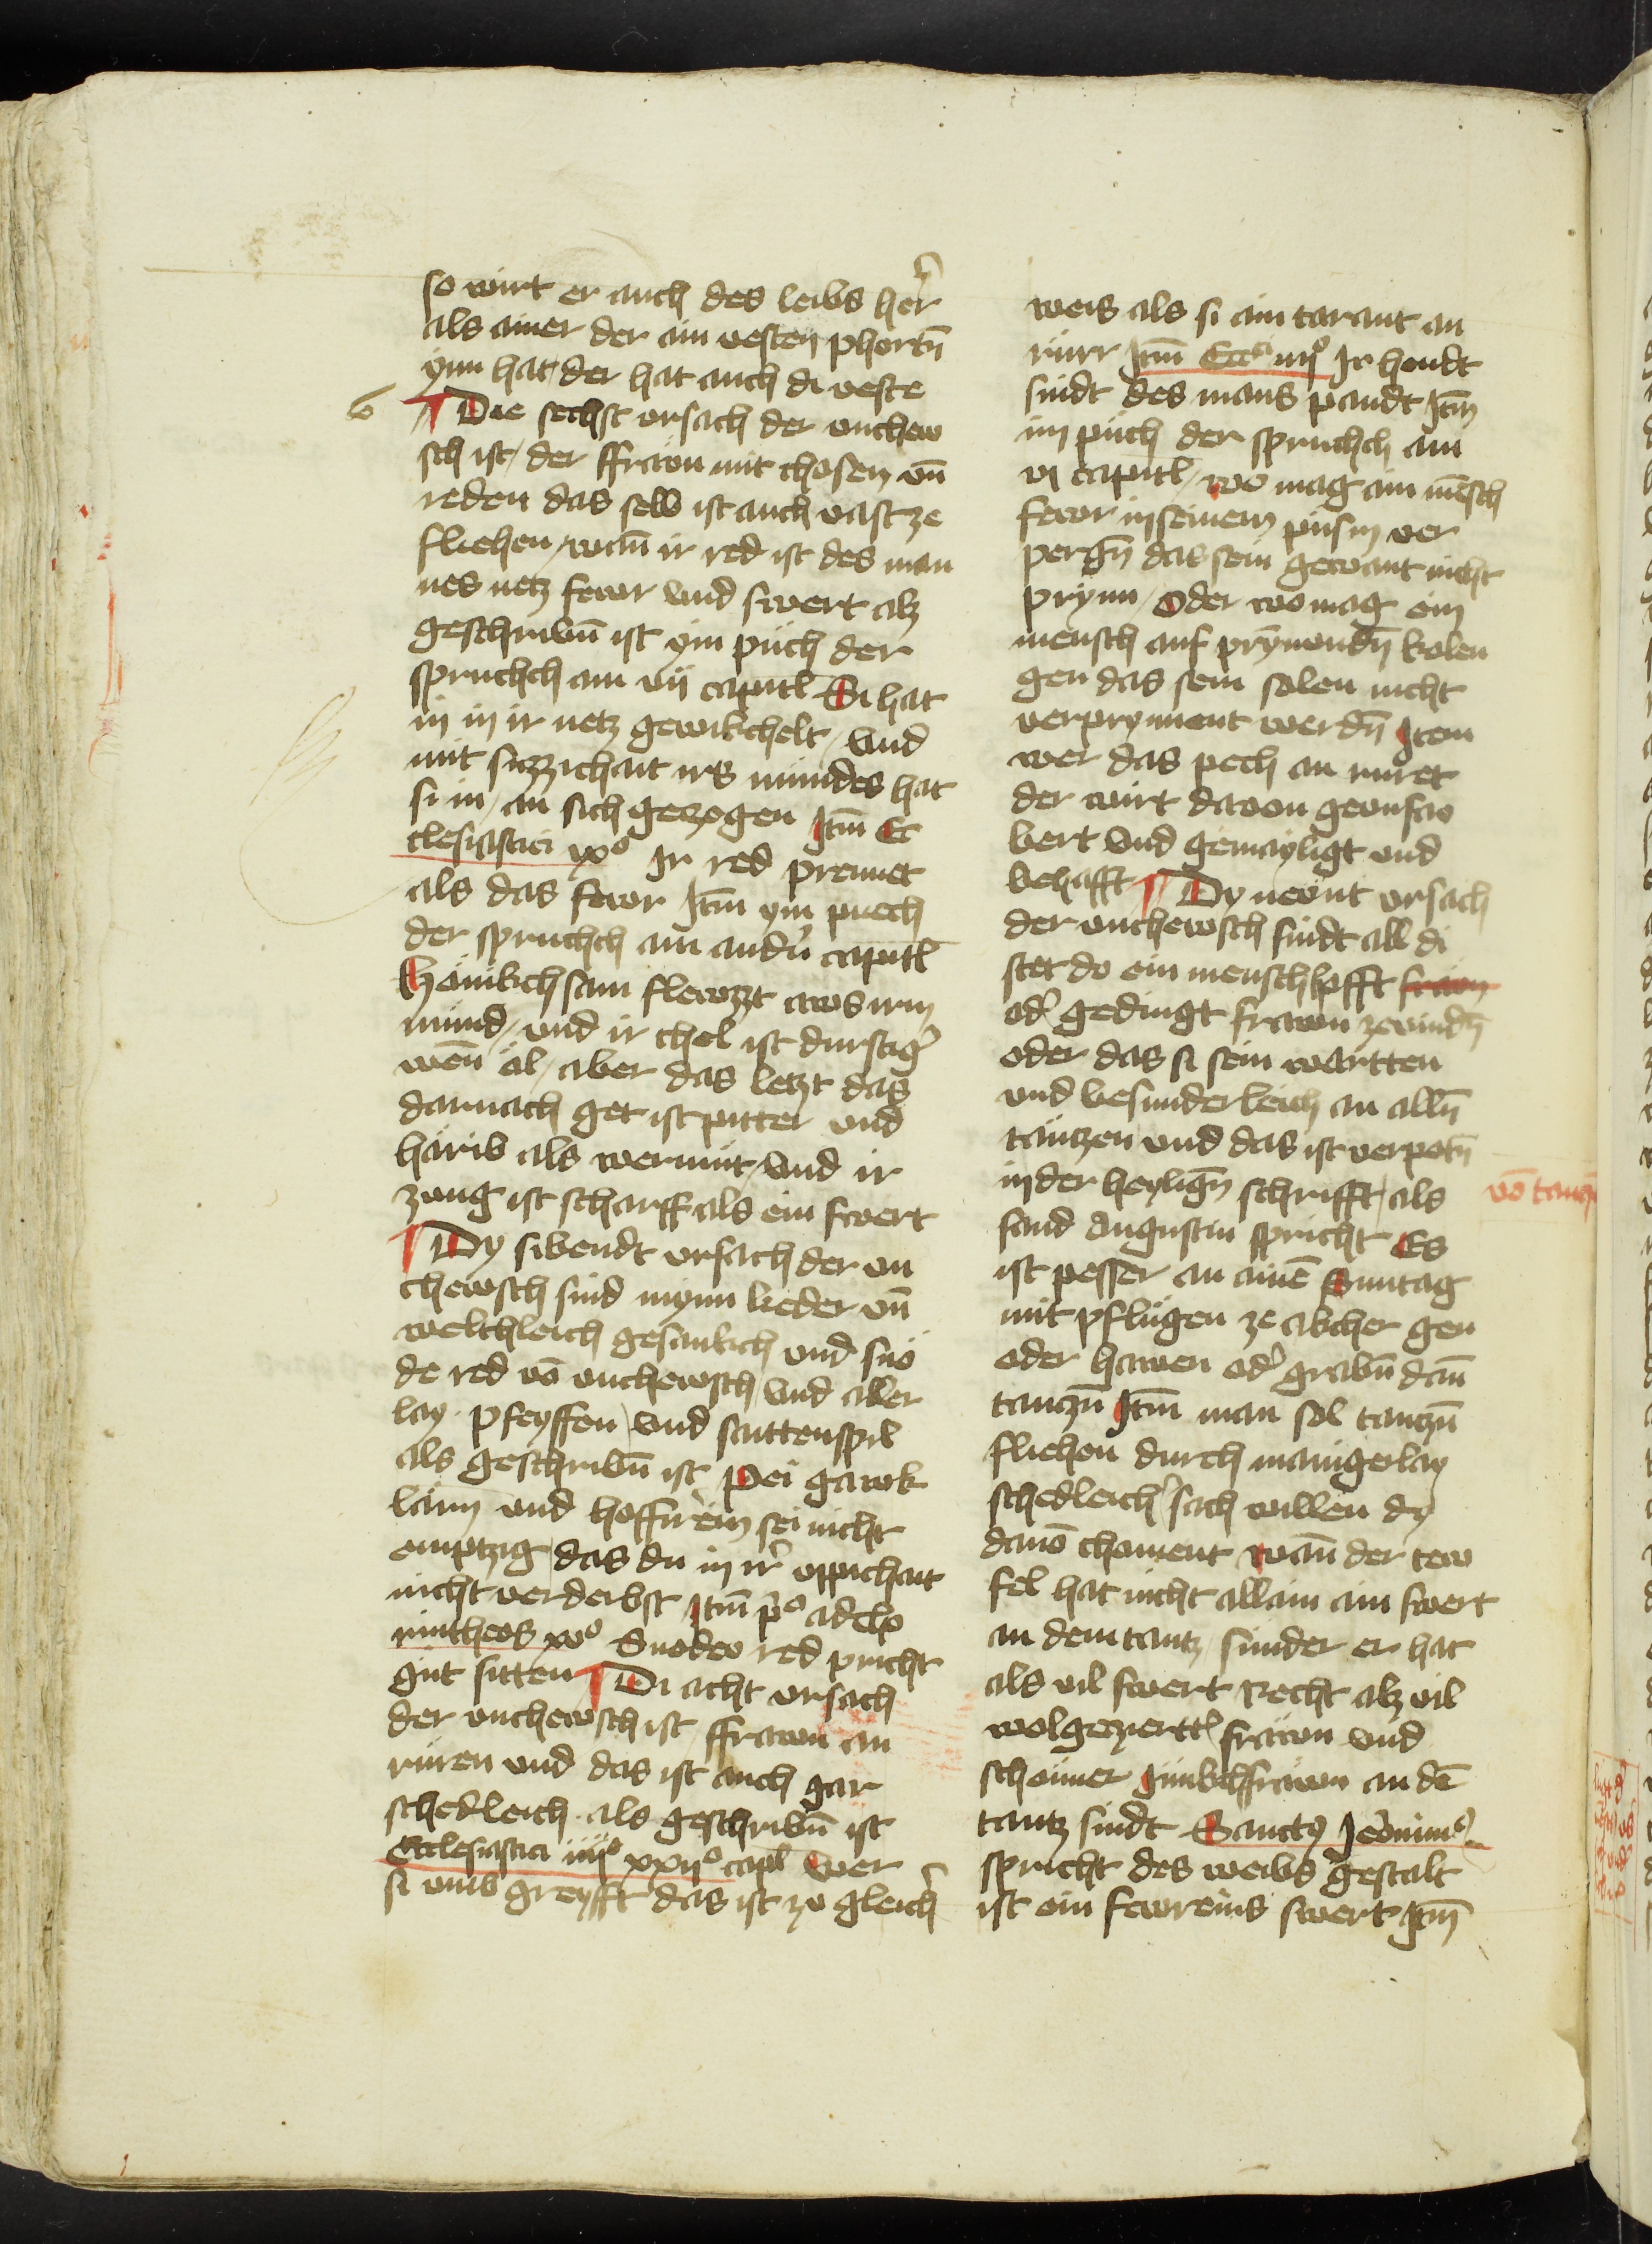 so wirt er auch des leibs her̄
als ainer der ain vesten phortn̄
ynn hat der hat auch di veste
6
¶ Die sechst vrsach der vnchew
sch ist / der ffrawn mit chosen vn̄
reden das selb ist auch vast ze
fliehen / wan̄ ir red ist des man
nes netz fewr vnd swert alz
geschribn̄ ist ym puch der
spruchch am vij capitl Si hat
in in ir netz gewikchelt / vnd
mit suzzichait irs mundes hat
si in / an sich geczogen Itm̄ Ec
clesiastici ixº Ir red prennet
als das fewr Itm̄ ym puech
der spruchch am andn̄ capitl
Hönikchsam flewzzt aws irm
mund / vnd ir chel ist durstigᵉ
wen̄ öl / aber das letzt das
darnach get ist pitter vnd
härib als wermüt / vnd ir
zung ist scharff als ein swert
¶ Dy sibendt vrsach der vn
chewsch sind mynn lieder vn̄
weltleich gesankch vnd snö
de red vō vnchewsch vnd aller
lay pfeyffen / vnd saittenspil
als geschribn̄ ist Pei gawk
lärin vnd hoffirerin sei nicht
emptzig das du in irᵉ vppichait
nicht verderbst Itm̄ pº ad cho
rintheos xvº Snodew red pricht
gut sitten ¶ Di acht vrsach
der vnchewsch ist ffrawn an
rüren vnd das ist auch gar
schedleich als geschribn̄ ist
Ecclesiastici xxijº capl Wer
si vmb greyfft das ist zu gleichᵉ
weis als si ain tarant an
rurr Itm̄ Ecci vijº Ir hendt
sindt des mans pandt Itm̄
im puch der spruchch am
vj capitl / wo mag ain mēsch
fewr in seinem pusm ver
pergn̄ das sein gewant nicht
prynn / Oder wo mag ein
mensch auf prynnendn̄ kolen
gen das sein solen nicht
verprynnent werdn̄ Item
wer das pech an ruret
der wirt dauon gevnsaw
bert vnd gemayligt vnd
behafft ¶ Dy newnt vrsach
der vnchewsch sindt all di
stet do ein mensch hofft frawn
odᵉ gedingt frawn ze vindn̄
oder das si sein wartten
vnd besunderleich an alln̄
täntzen vnd das ist verpotn̄
in der heylign̄ schrifft / als
vō tancz
sand Augustin spricht Es
ist pesser an ainē Suntag
mit pflügen ze akcher gen
oder hawen odᵉ grabn̄ dan̄
tanczn̄ Itm̄ man sol tanczn̄
fliehen durch manigerlay
schedleichᵉ sach willen dy
dauō choment wan̄ der tew
fel hat nicht allain ain swert
an dem tantz / sunder er hat
als vil swert Recht alz vil
wolgeziertᵉ frawn vnd
schönner junkchfrawn an dē
tantz sindt Sanctꝰ Jeronimꝰ
spricht des weibs gestalt
ist ein fewreins swert Itm̄